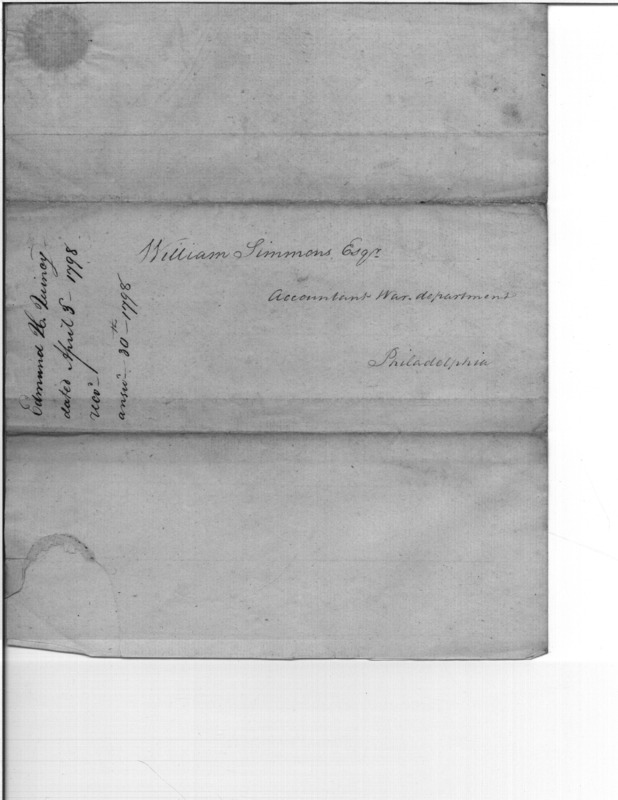 William Simmons, Esqr.
Accountant War-department
Philadelphia
Edmund H. Quincy
dated April 5 - 1798
recd
answd 30th - 1798